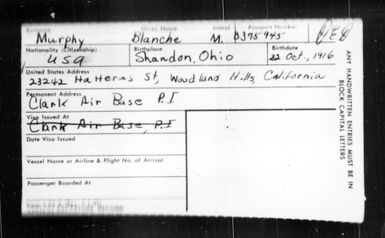 Initial Passport Number
Murphy Blanche M. B375945
Nationality (Citizenship) Birthplace Birthdate
USA Shandon, Ohio 22 Oct., 1916
United States Address
23242 Hatteras St, Woodland Hills California
Permanent Address
Clark Air Base P.I
Visa Issued At
Clark Air Base, P.I
Date Visa Issued
Vessel Name or Airline & Flight No. of Arrival
Passenger Boarded At
ANY HANDWRITTEN ENTRIES MUST BE IN
BLOCK CAPITAL LETTERS